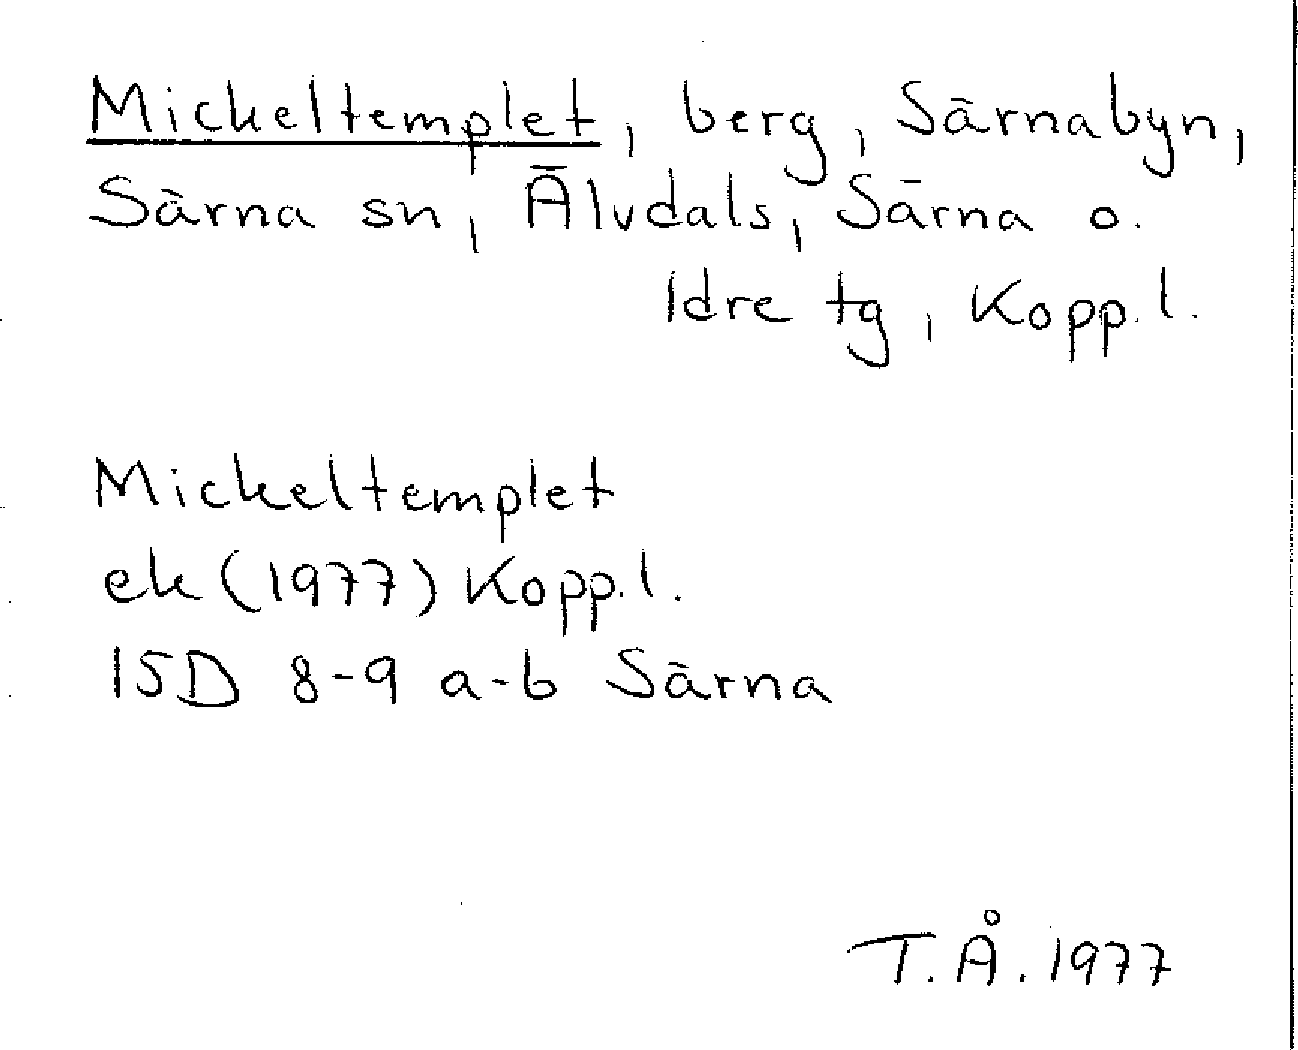 Mickeltemplet, berg, Särnabyn,
Särna sn, Älvdals, Särna o.
Idre tg, Kopp. l.
Mickeltemplet
ek (1977) Kopp. l.
15D 8-9 a-b Särna
T.Å. 1977